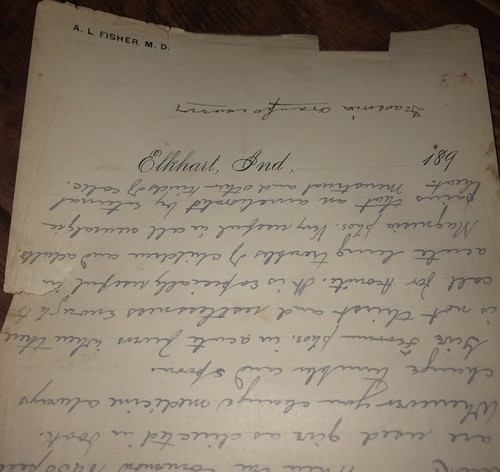 A. L. FISHER, M. D.
Elkhart, Ind., 189
when the common
are used give as directed in book.
Whenever you change medicine always
change tumbler and spoon.
Give Ferrum phos. in acute fevers when there
is not thirst and restlessness enough to
call for Aconite. It is especially useful in
acute lung troubles of children and adults
Magnesia phos. Very useful in all neuralgic
pains that are ameliorated by external
heat. Menstrual and other kinds of colic.
Orange county